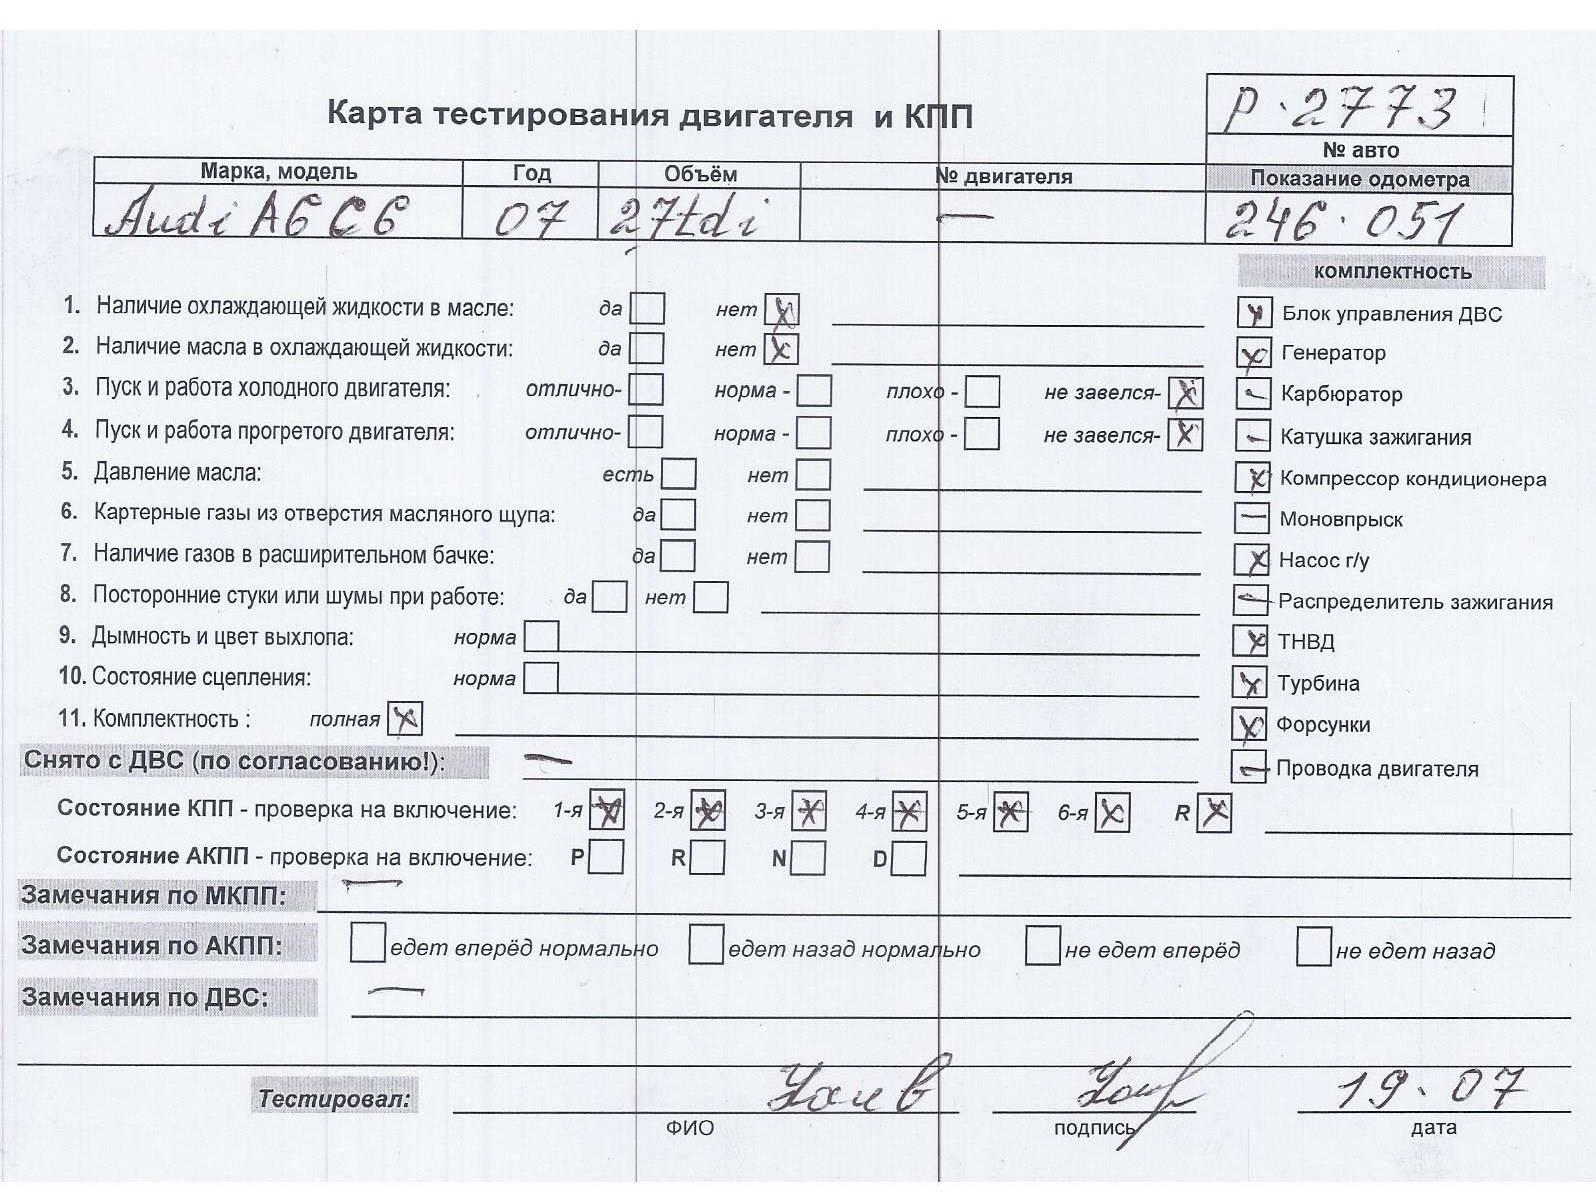 Р·2773
Карта тестирования двигателя и КПП
№ авто
Марка, модель Год Объём № двигателя Показание одометра
Audi A6 C6 07 2,7tdi — 246·051
комплектность
1. Наличие охлаждающей жидкости в масле: да нет х
Блок управления ДВС
2. Наличие масла в охлаждающей жидкости: да нет х
Генератор
3. Пуск и работа холодного двигателя: отлично- норма - плохо - не завелся- х
Карбюратор
4. Пуск и работа прогретого двигателя: отлично- норма - плохо - не завелся- х
Катушка зажигания
5. Давление масла: есть нет
Компрессор кондиционера
6. Картерные газы из отверстия масляного щупа: да нет
Моновпрыск
7. Наличие газов в расширительном бачке: да нет
Насос г/у
8. Посторонние стуки или шумы при работе: да нет
Распределитель зажигания
9. Дымность и цвет выхлопа: норма
ТНВД
10. Состояние сцепления: норма
Турбина
11. Комплектность : полная х
Форсунки
Снято с ДВС (по согласованию!): —
Проводка двигателя
Состояние КПП - проверка на включение: 1-я 2-я 3-я 4-я 5-я 6-я R
Состояние АКПП - проверка на включение: P R N D
Замечания по МКПП: —
Замечания по АКПП: едет вперёд нормально едет назад нормально не едет вперёд не едет назад
Замечания по ДВС: —
Тестировал: 19·07
ФИО подпись дата